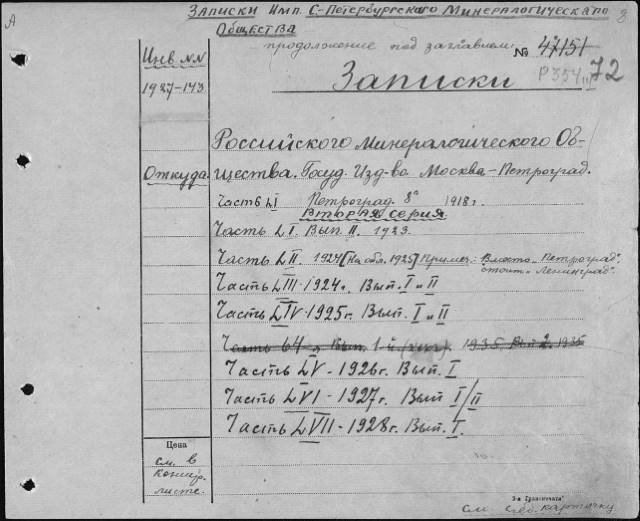 А
Записки Имп. С-Петербургского Минералогическаго
Общества
8
продолжение под заглавием:
№ 47151
Р354 72
Инв. NN
1927-143
Записки
Российского Минералогического Об-
Откуда
щества. Госуд. Изд-во Москва-Петроград.
Часть LI Петроград. 8° 1918 г.
Вторая серия
Часть LI. Вып. II. 1923.
Часть LII. 1924 [На обл. 1925] Примеч.: Вместо „Петроград"
стоит „Ленинград".
Часть LIII-1924 г. Вып. I и II
Часть LIV-1925 г. Вып. I и II
Часть 64-я Вып. 1-й 1935. Вып 2. 1935
Часть LV-1926 г. Вып. I
Часть LVI-1927 г. Вып I/II
Часть LVII-1928 г. Вып. I.
Цена
см. в
конц.
листе.
3-я Гранпечати
См. след. карточку